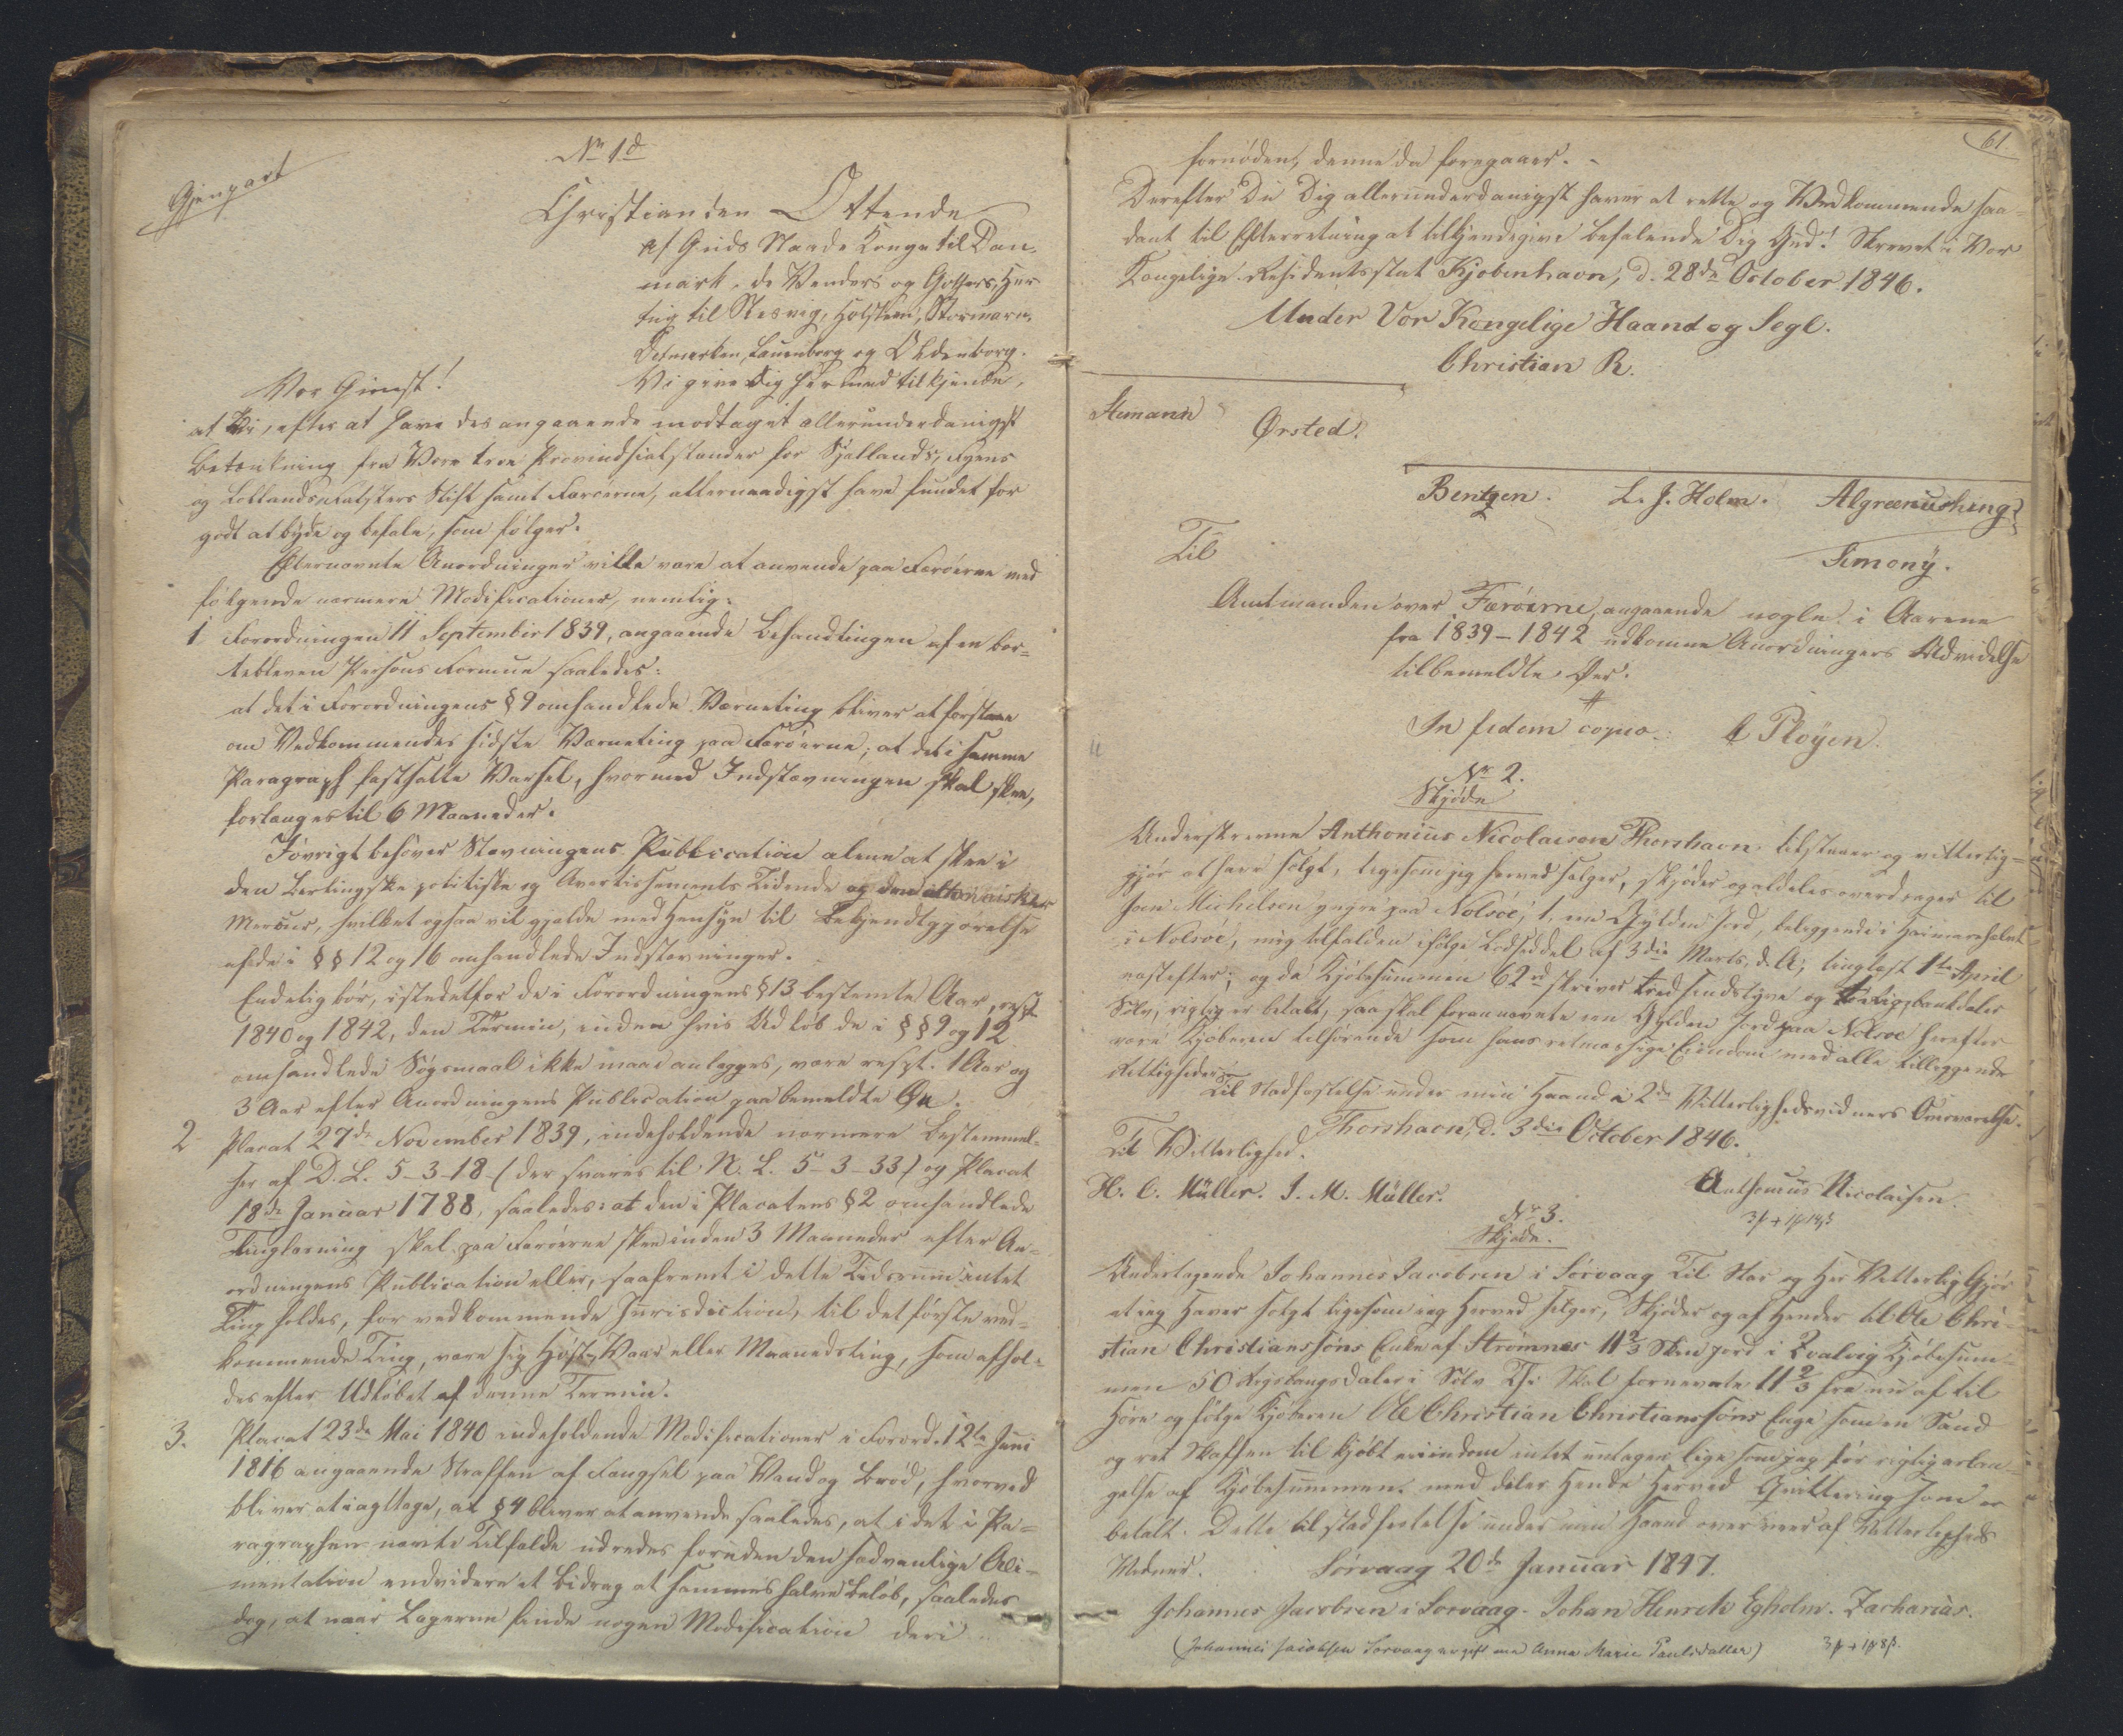 Gjenpart
No 1d
Christian den Ottende
af Guds Naade Konge til Dan-
mark, de Venders og Gothers, Her-
tug til Slesvig, Holsteen, Stormarn,
Ditmarsken, Lauenborg og Oldenborg.
Vor Gunst! Vi give Dig hermed tilkjende,
at Vi, efter at have desangaaende modtaget allerunderdanigst
Betænkning fra Vore troe Provindsialstænder for Sjellands, Fyens
og Lollands-Falsters Stift samt Færøerne, allernaadigst have fundet for
godt at byde og befale, som følger.
Efternævnte Anordninger ville være at anvende paa Færøerne med
følgende nærmere Modificationer, nemlig:
1 Forordningen 11 September 1839, angaaende Behandlingen af en bor-
tebleven Persons Formue saaledes:
at det i Forordningens § 9 omhandlede Værneting bliver at forstaae
om Vedkommendes sidste Værneting paa Færøerne; at det i samme
Paragraph fastsatte Varsel, hvormed Indstævningen skal skee,
forlænges til 6 Maaneder.
Iøvrigt behøver Stævningens Publication alene at skee i
den Berlingske politiske og Avertissements Tidende og den altonaiske
Mercur, hvilket ogsaa vil gjelde med Hensyn til Bekjendtgjørelse
af de i §§ 12 og 16 omhandlede Indstævninger.
Endelig bør, istedetfor de i Forordningens § 13 bestemte Aar, resp.
1840 og 1842, den Termin, inden hvis Udløb de i §§ 9 og 12
omhandlede Søgsmaal ikke maae anlægges, være resp. 1 Aar og
3 Aar efter Anordningens Publication paa bemeldte Øe.
2 Placat 27de November 1839, indeholdende nærmere Bestemmel-
ser af D. L. 5-3-18 (der svarer til N. L. 5-3-33) og Placat
18de Januar 1788, saaledes: at den i Placatens § 2 omhandlede
Tinglæsning skal paa Færøerne skee inden 3 Maaneder efter An-
ordningens Publication eller, saafremt i dette Tidsrum intet
Ting holdes, for vedkommende Jurisdiction, til det første ved-
kommende Ting, være sig Høst, Vaar eller Maanedsting, som afhol-
des efter Udløbet af denne Termin.
3. Placat 23de Mai 1840 indeholdende Modificationer i Forord. 12te Juni
1816 angaaende Straffen af Fængsel paa Vand og Brød, hvorved
bliver at iagttage, at § 4 bliver at anvende saaledes, at i det i Pa-
ragraphen nævnte Tilfælde udredes foruden den sædvanlige Ali-
mentation endvidere et Bidrag at sammes halve Beløb, saaledes
dog, at naar Lægerne finde nogen Modification deri
61.
fornøden, denne da foregaaer. -
Derefter Du Dig allerunderdanigst haver at rette og Vedkommende saa-
dant til Efterretning at tilkjendegive. Befalende Dig Gud! Skrevet i Vor
Kongelige Residentsstad Kjøbenhavn, d. 28de October 1846.
Under Vor Kongelige Haand og Segl.
Christian R.
Stemann
Ørsted.
Bentzen. L. J. Holm. Algreenussing
Simony.
Til
Amtmanden over Færøerne, angaaende nogle i Aarene
fra 1839-1842 udkomne Anordningers Udvidelse
til bemeldte Øer.
In fidem copiæ. C Pløyen.
No 2.
Skjøde
Underskrevne Anthonius Nicolaisen Thorshavn tilstaaer og vitterlig-
gjør at have solgt, ligesom jeg herved sælger, skjøder og aldeles overdrager til
Joen Michelsen yngre paa Nolsøe, 1, en Gylden Jord, beliggende i
i Nolsøe, mig tilfalden ifølge Lodseddel af 3die Marts d. A., tinglæst 1ste April
næstefter; og da Kjøbesummen 62rd skriver tresindstyve og to Rigsbankdaler
Sølv, rigtig er betalt, saa skal forannævnte een Gylden Jord paa Nolsøe herefter
være Kjøberen tilhørende som hans retmæssige Eiendom med alle tilliggende
Rettigheder.
Til Stadfæstelse under min Haand i 2de Vitterlighedsvidners Overværelse.
Thorshavn, d. 3die October 1846.
Til Vitterlighed.
H. C. Müller. J. M. Müller. Anthonius Nicolaisen.
No 3.
Skjøde.
Undertegnede Johannes Jacobsen i Sørvaag Til Staar og Her Vetterlig Gjør
at jeg Haver solgt ligesom jeg Herved sælger, Skjøder og af Hender til Ole Chri-
stian Christianssøns Enke af Strømnæs 11 2/3 Skin jord i Qvalvig Kjøbesum-
men 50 Rigsbangsdaler i Sølv Thi Skal fornevnte 11 2/3 fra nu af til
Høre og følge Kjøberen Ole Christian Christianssøns Enge som en Sand
og ret Skaffen til kjøbt eiindom intet undtagen lige som jeg for rigtig erlæg-
gelse af Kjøbesummen med deler Hende Herved Qvittering som er
betalt. Dette til stadfestelse under min Haand over vær af Vetterligheds
Vedner. Sørvaag 20de Januar 1847.
Johannes Jacobsen i Sørvaag. Johan Henrek Egholm. Zacharias.
(Johannes Jacobsen Sørvaag er gift med Anna Marie Paulsdatter)